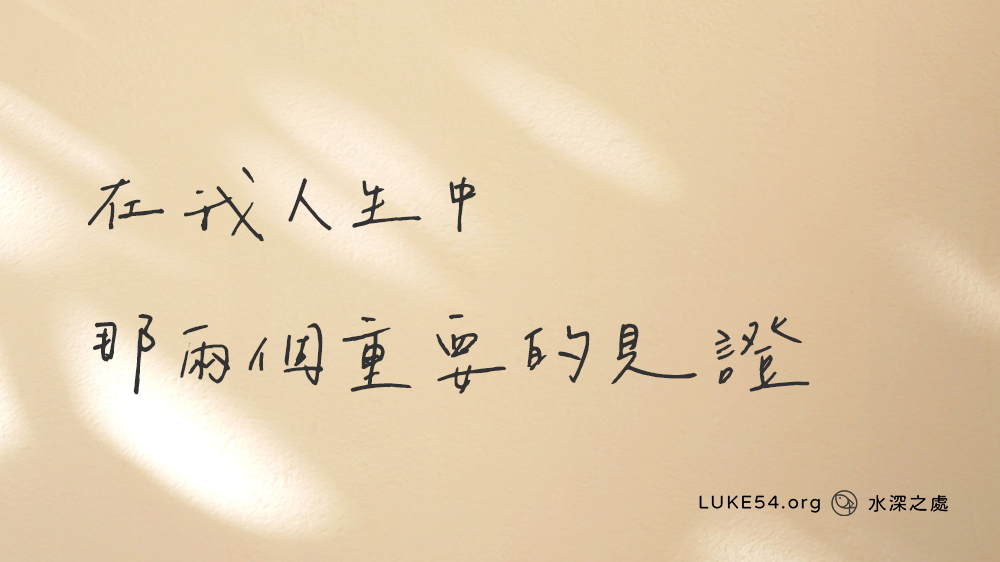 在我人生中
那兩個重要的見證
LUKE54.org 水深之處